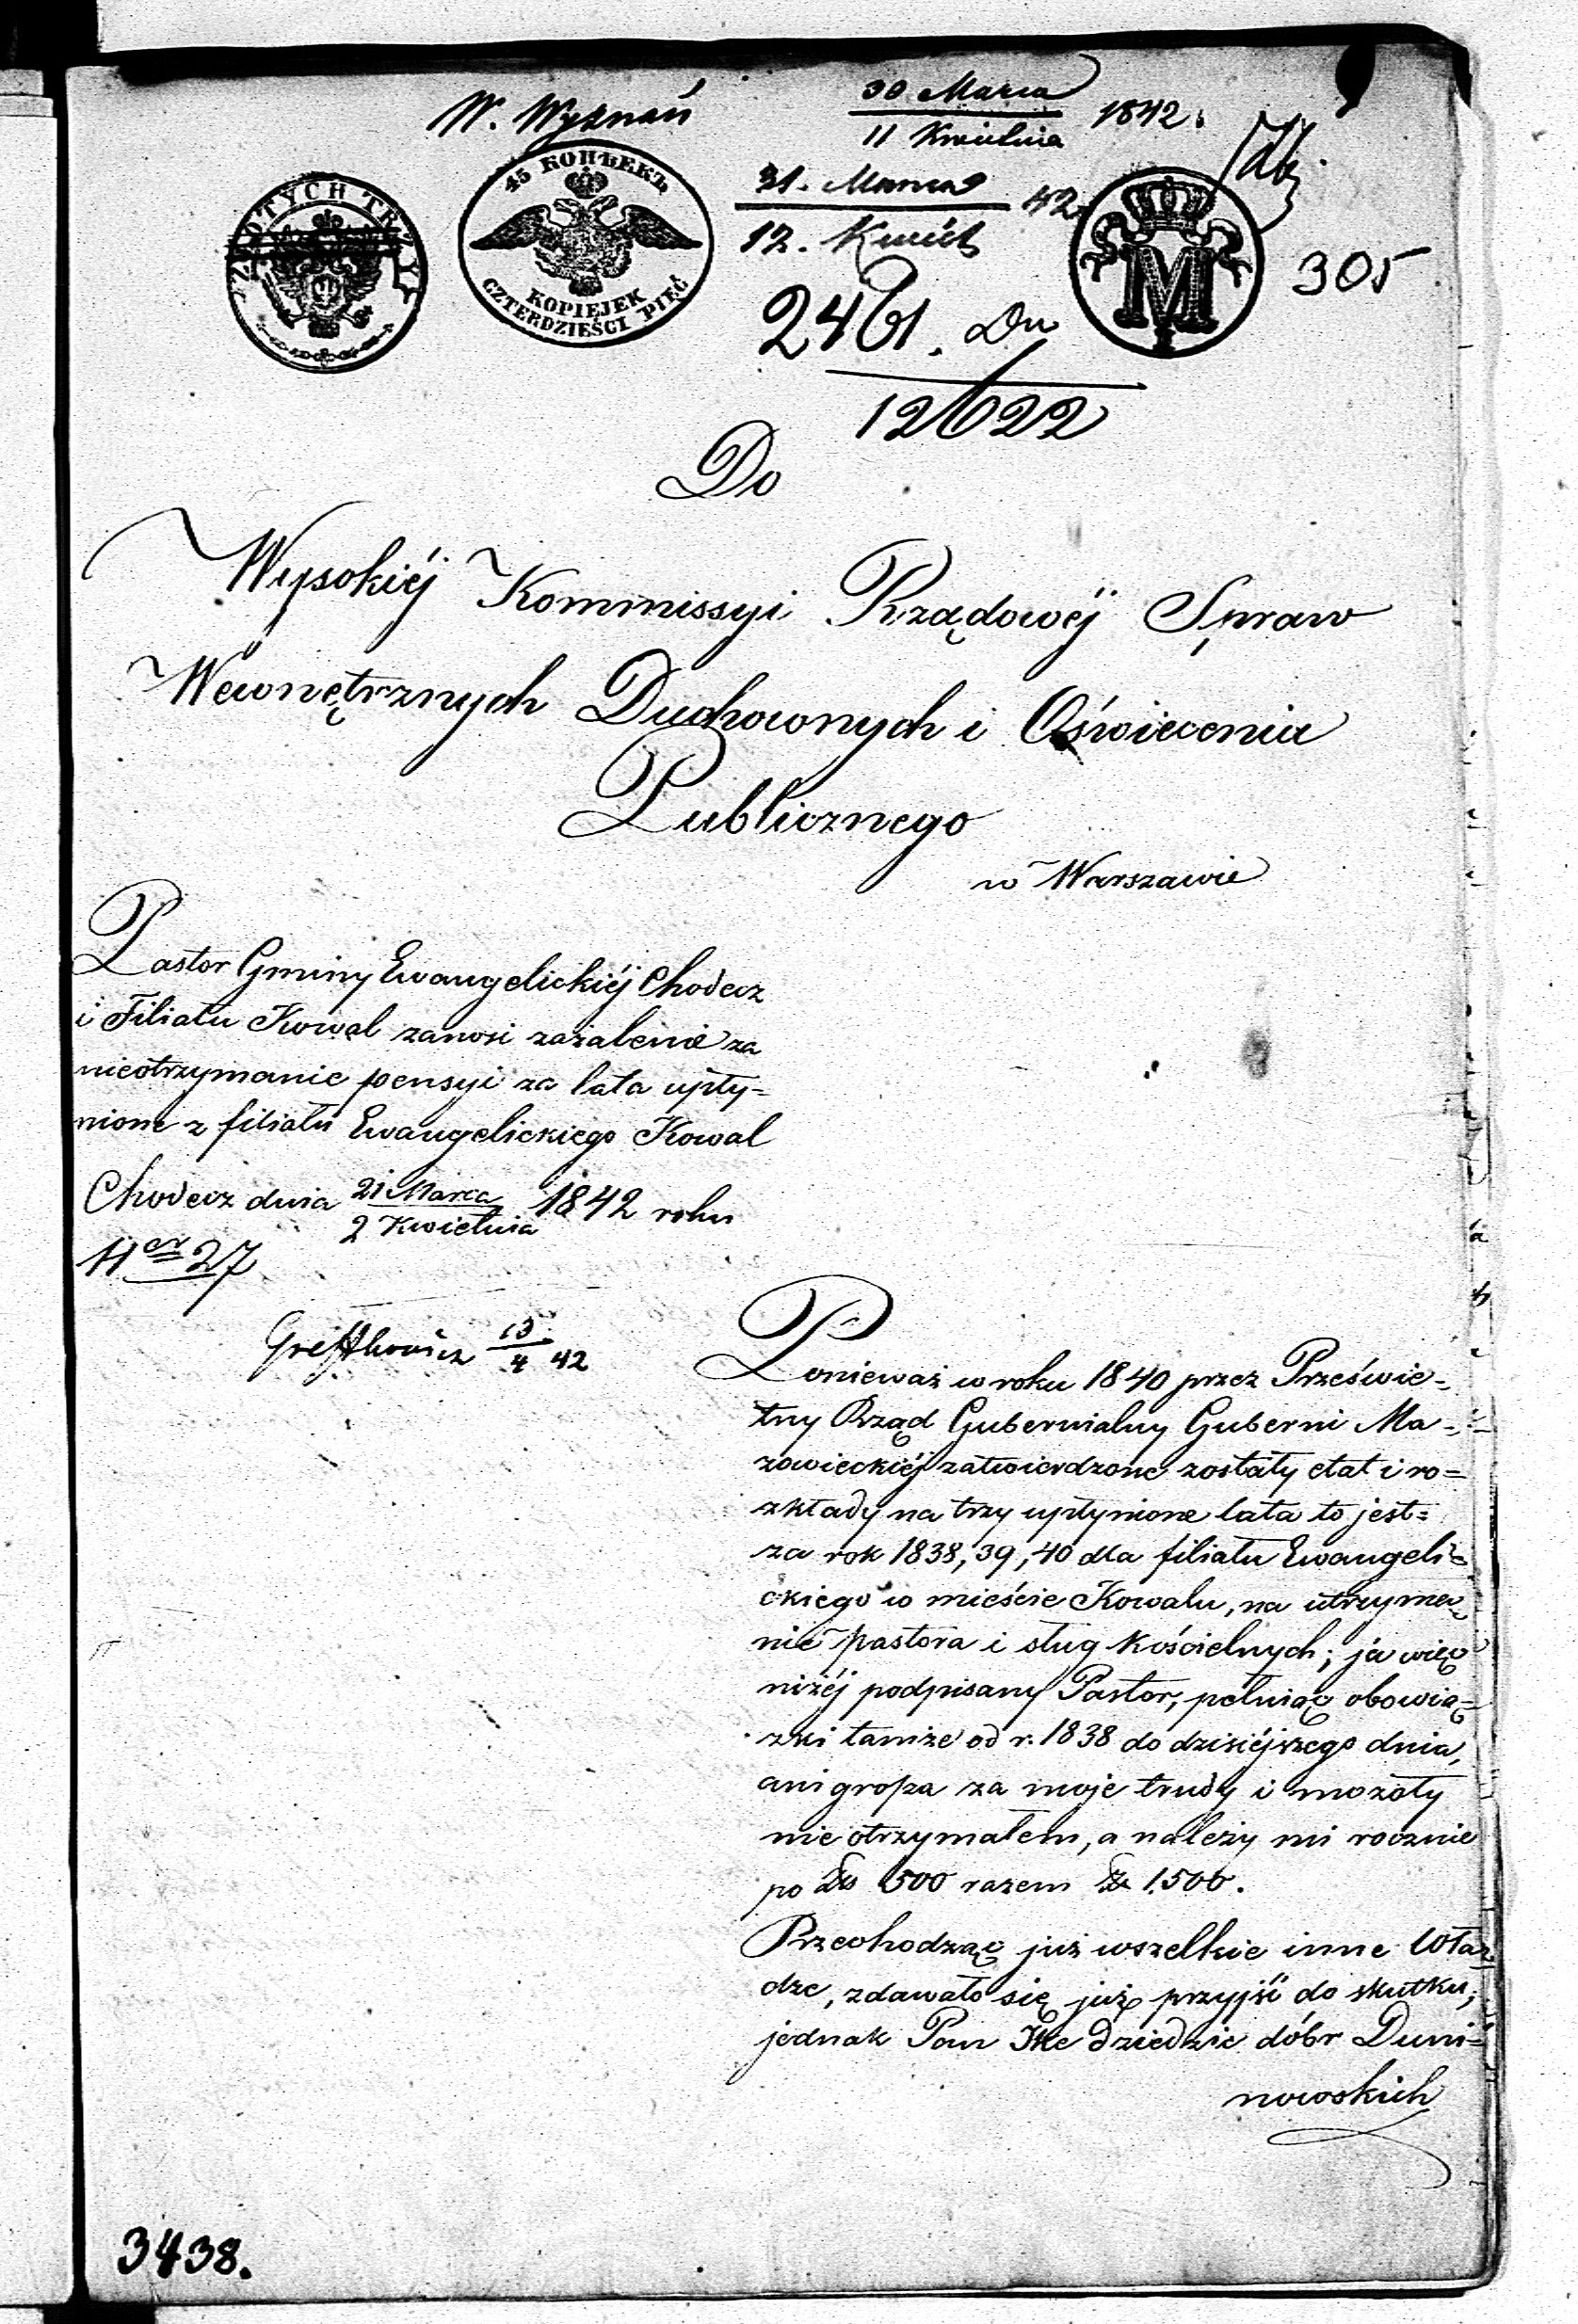 W. Wyznań
30 Marca
11 Kwietnia 1842.
31. Marca
12. Kwiet 42
ZŁOTYCH TRZY
45 КОПѢЕКЪ
KOPIEJEK
CZTERDZIEŚCI PIĘĆ
M
305
2461. Du
12622
Do
Wysokiéj Kommissyi Rządowéj Spraw
Wewnętrznych Duchownych i Oświecenia
Publicznego
w Warszawie
Pastor Gminy Ewangelickiéj Chodecz
i Filiału Kowal zanosi zażalenie za
nieotrzymanie pensyi za lata upły=
nione z filiału Ewangelickiego Kowal
Chodecz dnia 21 Marca
2 Kwietnia 1842 roku
Ner 27
13
4 42
Ponieważ w roku 1840 przez Prześwie=
tny Rząd Gubernialny Guberni Ma=
zowieckiéj zatwierdzone zostały etat i ro=
zkłady na trzy upłynione lata to jest=
za rok 1838, 39, 40 dla filiału Ewangeli=
ckiego w mieście Kowalu, na utrzyma=
nie pastora i sług kościelnych; ja więc
niżéj podpisany Pastor, pełniąc obowią=
zki tamże od r. 1838 do dzisiéjszego dnia,
ani grosza za moje trudy i mozoły
nie otrzymałem, a należy mi rocznie
po Złp 500 razem Złp 1,500.
Przechodząc już wszelkie inne Wła=
dze, zdawało się już przyjść do skutku;
jednak Pan Ike dziedzic dóbr Duni=
nowskich
3438.